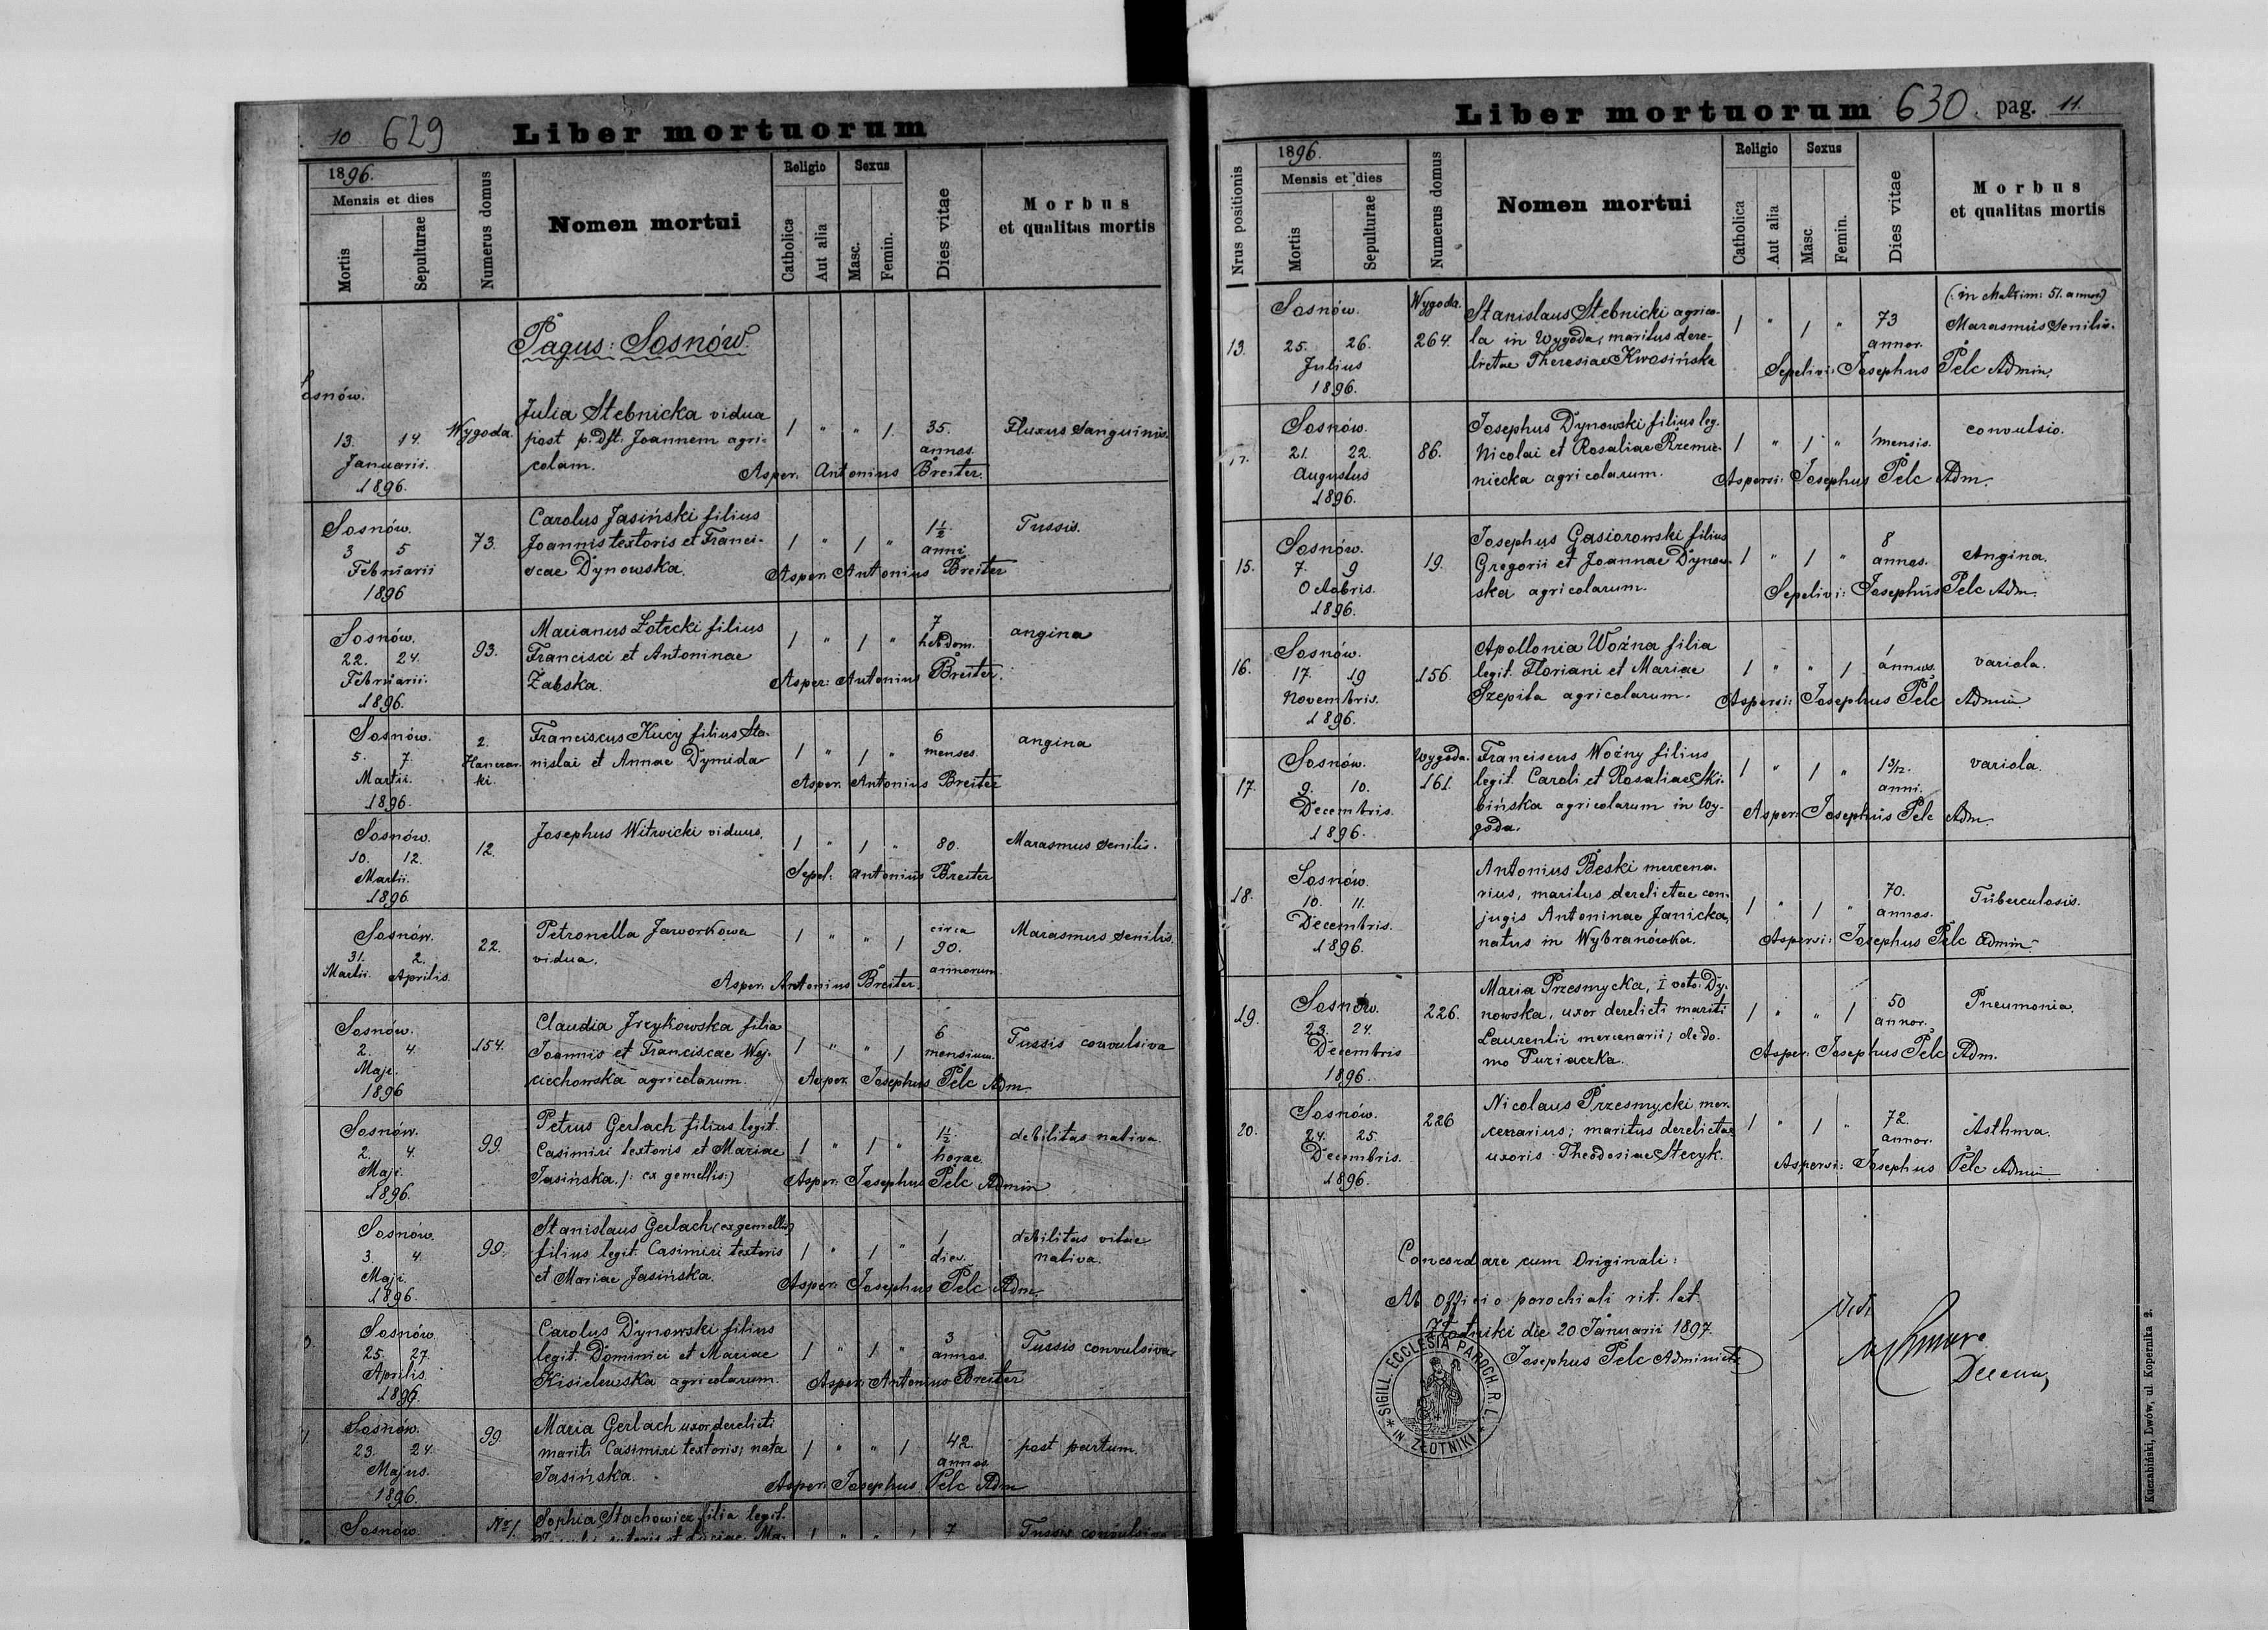 10 629 Liber mortuorum
1896.
Menzis et dies
Mortis
Sepulturae
Numerus domus
Nomen mortui
Religio
Catholica
Aut alia
Sexus
Masc.
Femin.
Dies vitae
Morbus
et qualitas mortis
Pagus: Sosnów.
osnów.
13. 14.
Januarii.
1896.
Wygoda.
Julia Stebnicka vidua
post p. Dft. Joannem agri-
colam.
1 " " 1. 35.
annos.
Fluxus Sanguinis.
Asper. Antonius Breiter.
Sosnów.
3 5
Februarii
1896
73.
Carolus Jasiński filius
Joannis textoris et Franci-
scae Dynowska.
1 " 1 " 1½.
anni.
Tussis.
Asper: Antonius Breiter
Sosnów.
22. 24.
Februarii.
1896.
93.
Marianus Łotecki filius
Francisci et Antoninae
Żabska.
1 " 1 " 7
hebdom.
angina
Asper: Antonius Breiter.
Sosnów.
5. 7.
Martii.
1896.
2.
ki.
Franciscus Kucy filius Sta-
nislai et Annae Dymida
1 " 1 " 6
menses.
angina
Asper. Antonius Breiter
Sosnów.
10. 12.
Martii.
1896.
12.
Josephus Witwicki viduus.
1 " 1 " 80.
Marasmus senilis.
Sepel: Antonius Breiter
Sosnów.
31. 2.
Martii. Aprilis.
22.
Petronella Jaworkowa
vidua.
1 " " 1 circa
90.
annorum.
Marasmus senilis.
Asper: Antonius Breiter.
Sosnów.
2. 4.
Maji.
1896
154.
Claudia Jrzykowska filia
Joannis et Franciscae Woj-
ciechowska agricolarum.
1 " " 1 6
mensium.
Tussis convulsiva
Asper. Josephus Pelc Adm.
Sosnów.
2. 4.
Maji.
1896.
99.
Petrus Gerlach filius legit.
Casimiri textoris et Mariae
Jasińska /: ex gemellis:)
1 " 1 " 1½.
horae.
debilitas nativa.
Asper: Josephus Pelc Admin
Sosnów.
3. 4.
Maji.
1896.
99.
Stanislaus Gerlach (ex gemellis)
filius legit. Casimiri textoris
et Mariae Jasińska.
1 " 1 " 1
dies.
debilitas vitae
nativa.
Asper: Josephus Pelc Adm.
Sosnów.
25. 27.
Aprilis.
1896.
Carolus Dynowski filius
legit. Dominici et Mariae
Kisielewska agricolarum.
1 " 1 " 3
annos.
Tussis convulsiva
Asper: Antonius Breiter
Sosnów.
23. 24.
Majus.
1896.
99.
Maria Gerlach uxor derelicti
mariti Casimiri textoris; nata
Jasińska.
1 " " 1 42.
annos.
post partum.
Asper: Josephus Pelc Adm
Sosnów.
No 1.
Sophia Stachowicz filia legit.
1 " " 1 7
Tussis convulsiva
Liber mortuorum 630. pag. 11.
Nrus positionis
1896.
Mensis et dies
Mortis
Sepulturae
Numerus domus
Nomen mortui
Religio
Catholica
Aut alia
Sexus
Masc.
Femin.
Dies vitae
Morbus
et qualitas mortis
13.
Sosnów.
25. 26.
Julius
1896.
Wygoda.
264.
Stanislaus Stebnicki agrico-
la in Wygoda; maritus dere-
lictae Theresiae Kwosińska
1 " 1 " 73
annor.
Marasmus senilis.
Sepelivi: Josephus Pelc Admin.
Sosnów.
21. 22.
Augustus
1896.
86.
Josephus Dynowski filius leg.
Nicolai et Rosaliae Rzemie-
niecka agricolarum.
1 " 1 " 1 mensis.
convulsio.
Aspersi: Josephus Pelc Adm.
15.
Sosnów.
7. 9
Octobris.
1896.
19.
Josephus Gasiorowski filius
Gregorii et Joannae Dynow-
ska agricolarum.
1 " 1 " 8
annos.
Angina.
Sepelivi: Josephus Pelc Adm.
16.
Sosnów.
17. 19
Novembris.
1896.
156.
Apollonia Woźna filia
legit. Floriani et Mariae
Szepita agricolarum.
1 " " 1 1
annus.
variola.
Aspersi: Josephus Pelc Admin.
17.
Sosnów.
9. 10.
Decembris.
1896.
Wygoda.
161.
Franciscus Woźny filius
legit. Caroli et Rosaliae Ski-
bińska agricolarum in Wy-
goda.
1 " 1 " 1 3/12.
anni.
variola.
Asper: Josephus Pelc Adm.
18.
Sosnów.
10. 11.
Decembris.
1896.
Antonius Beski mercena-
rius, maritus derelictae con-
jugis Antoninae Janicka,
natus in Wybranówka.
1 " 1 " 70.
annos.
Tuberculosis.
Aspersi: Josephus Pelc Admin.
19.
Sosnów.
23. 24.
Decembris
1896.
226.
Maria Przesmycka, I voto: Dy-
nowska, uxor derelicti mariti
Laurentii mercenarii; de do-
mo Puziaczka.
1 " " 1 50
annor.
Pneumonia.
Asper: Josephus Pelc Adm.
20.
Sosnów.
24. 25.
Decembris.
1896.
226
Nicolaus Przesmycki mer-
cenarius; maritus derelictae
uxoris Theodosiae Stecyk.
1 " 1 " 72.
annor.
Asthma.
Aspersi: Josephus Pelc Admin
Concordare cum Originali:
Ab Officio parochiali rit. lat.
Złotniki die 20 Januarii 1897.
Josephus Pelc Administr
SIGILL. ECCLESIA PAROCH. R. L. * IN ZŁOTNIKI *
Vidi
Kuczabiński, Lwów, ul. Kopernika 2.